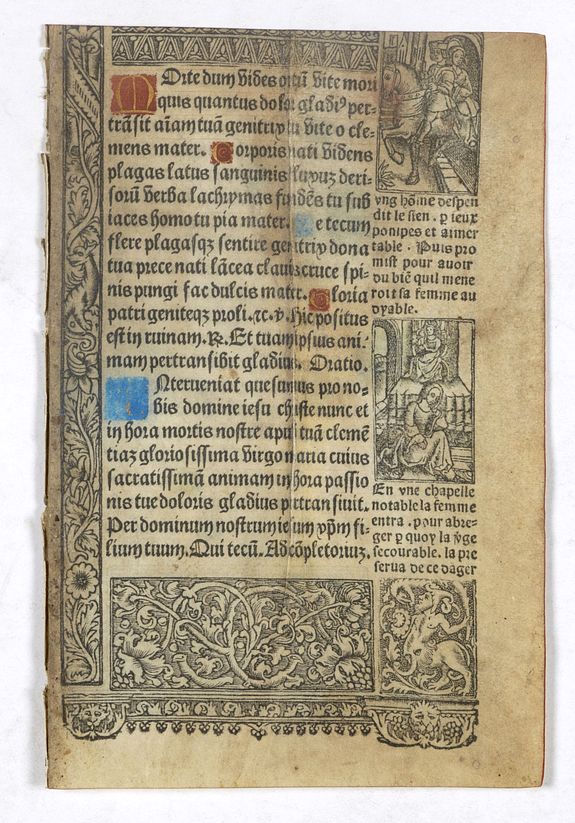 Morte dum vides ortū vite mori
quis quantus dolor gladiꝰ per-
trāsit aīam tuā genitrix tu vite o cle-
mens mater. Corporis nati videns
plagas latus sanguinis fluxuȝ deri-
sorū verba lachrymas fundēs tu sub
iaces homo tu pia mater. Te tecum
flere plagasqȝ sentire genitrix dona
tua prece nati lācea clauis cruce spi-
nis pungi fac dulcis mater. Gloria
patri geniteqȝ proli. ꝛc. ℣. Hic positus
est in ruinam. ℟. Et tuam ipsius ani-
mam pertransibit gladius. Oratio.
INterueniat quesumus pro no-
bis domine iesu christe nunc et
in hora mortis nostre apud tuā clemē
tiaȝ gloriosissima virgo maria cuius
sacratissimā animam in hora passio
nis tue doloris gladius pertransiuit.
Per dominum nostrum iesum xp̄m fi-
lium tuum. Qui tecū. Ad cōpletoriuȝ.
vng hōme despen
dit le sien. p ieux
pompes et aimer
table. Puis pro
mist pour auoir
du biē quil mene
roit sa femme au
dyable.
En vne chapelle
notable la femme
entra. pour abre-
ger p quoy la v̄ge
secourable. la pre
serua de ce dāger